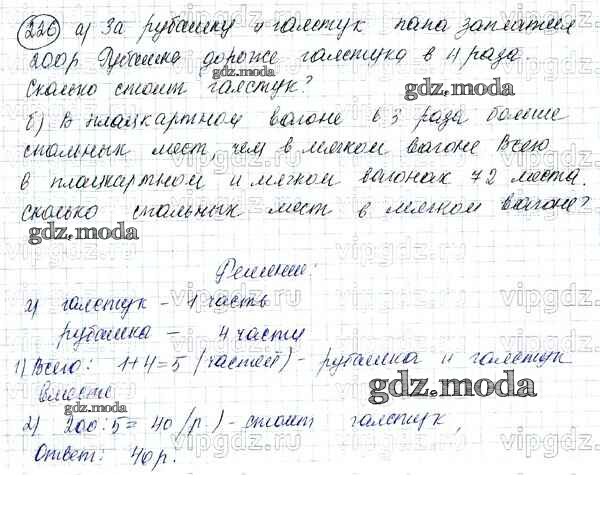 226 а) За рубашку и галстук папа заплатил
200р. Рубашка дороже галстука в 4 раза.
Сколько стоит галстук?
gdz.moda
б) В плацкартном вагоне в 3 раза больше
спальных мест, чем в мягком вагоне. Всего
в плацкартном и мягком вагонах 72 места.
Сколько спальных мест в мягком вагоне?
gdz.moda
vipgdz.ru
Решение:
а) галстук - 1 часть
рубашка - 4 части
1) Всего: 1+4=5 (частей) - рубашка и галстук
вместе
gdz.moda
2) 200:5=40 (р.) - стоит галстук,
Ответ: 40р.